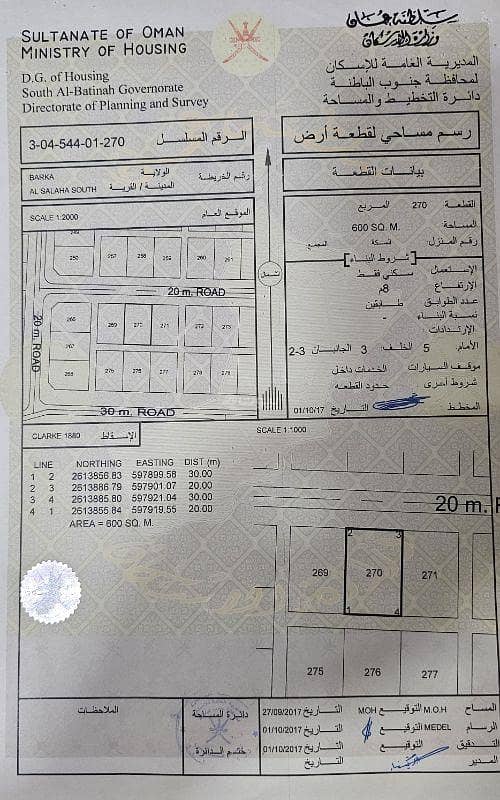 SULTANATE OF OMAN
MINISTRY OF HOUSING
D.G. of Housing
South Al-Batinah Governorate
Directorate of Planning and Survey
سلطنة عمان
وزارة الإسكان
المديرية العامة للإسكان
لمحافظة جنوب الباطنة
دائرة التخطيط والمساحة
3-04-544-01-270 الرقم المسلسل
رسم مساحي لقطعة أرض
BARKA الولاية
AL SALAHA SOUTH المدينة / القرية
رقم الخريطة
بيانات القطعة
SCALE 1:2000 الموقع العام
القطعة 270 المربع
المساحة 600 SQ. M.
رقم المنزل السكة المجمع
شروط البناء
الإستعمال سكني فقط
الإرتفاع 8م
عدد الطوابق طابقين
نسبة البناء -
الإرتدادات
الأمام 5 الخلف 3 الجانبان 2-3
موقف السيارات الخدمات داخل
شروط أخرى حدود القطعة
المخطط التاريخ 01/10/17
شمال
249
250 257 258 259 260 261
20 m. ROAD
268 269 270 271 272 273
20 m. ROAD
267
30 m. ROAD
CLARKE 1880 الإسقاط
SCALE 1:1000
LINE NORTHING EASTING DIST (m)
1 2 2613856.83 597899.58 30.00
2 3 2613886.79 597901.07 20.00
3 4 2613885.80 597921.04 30.00
4 1 2613855.84 597919.55 20.00
AREA = 600 SQ. M.
20 m.
2 3
269 270 271
1 4
275 276 277
الملاحظات
دائرة المساحة
ختم الدائرة
المساح M.O.H التوقيع MOH التاريخ 27/09/2017
الرسام MEDEL التوقيع التاريخ 01/10/2017
التدقيق التوقيع التاريخ 01/10/2017
المدير التاريخ